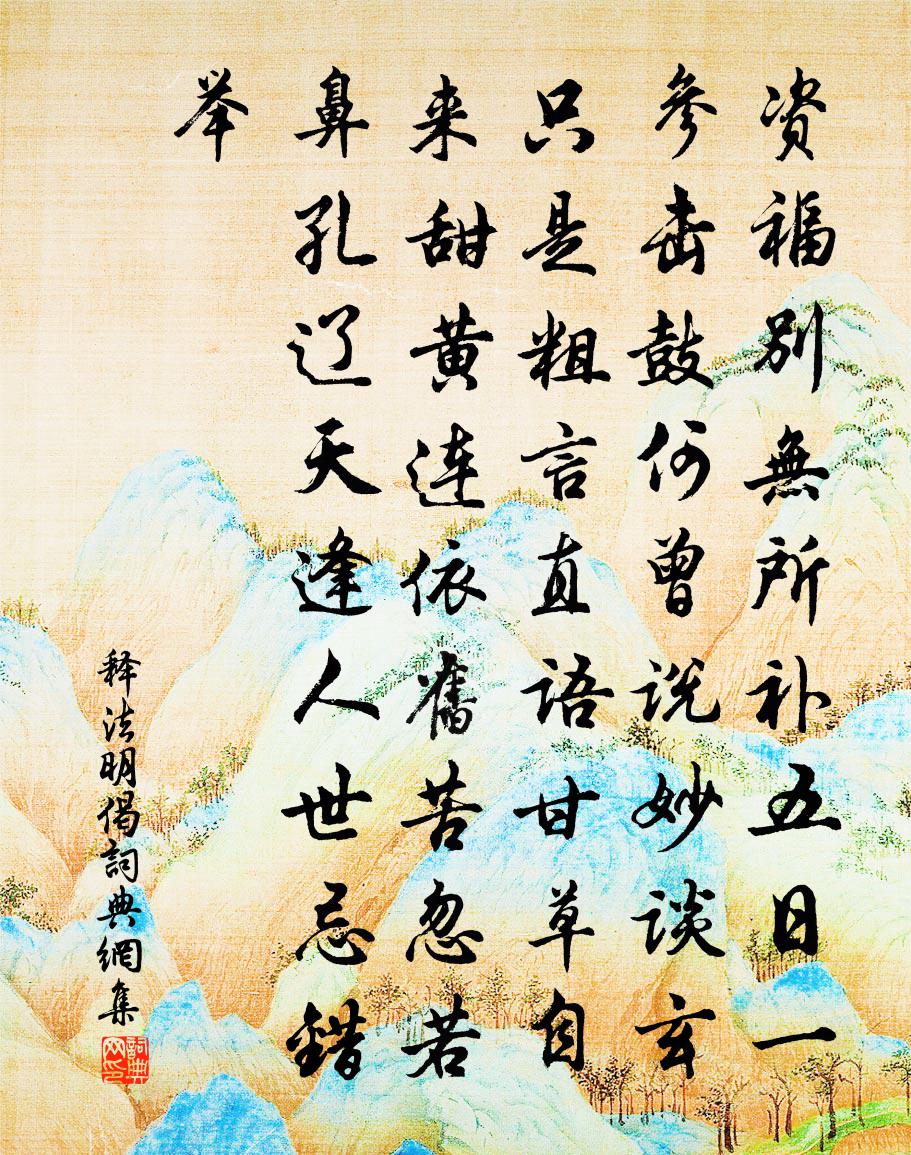 资福别無所补五日一
参击鼓何曾说妙谈玄
只是粗言直语甘草自
来甜黄连依舊苦忽若
鼻孔辽天逢人世忌錯
举
释法明偈詞典網集
詞典网印